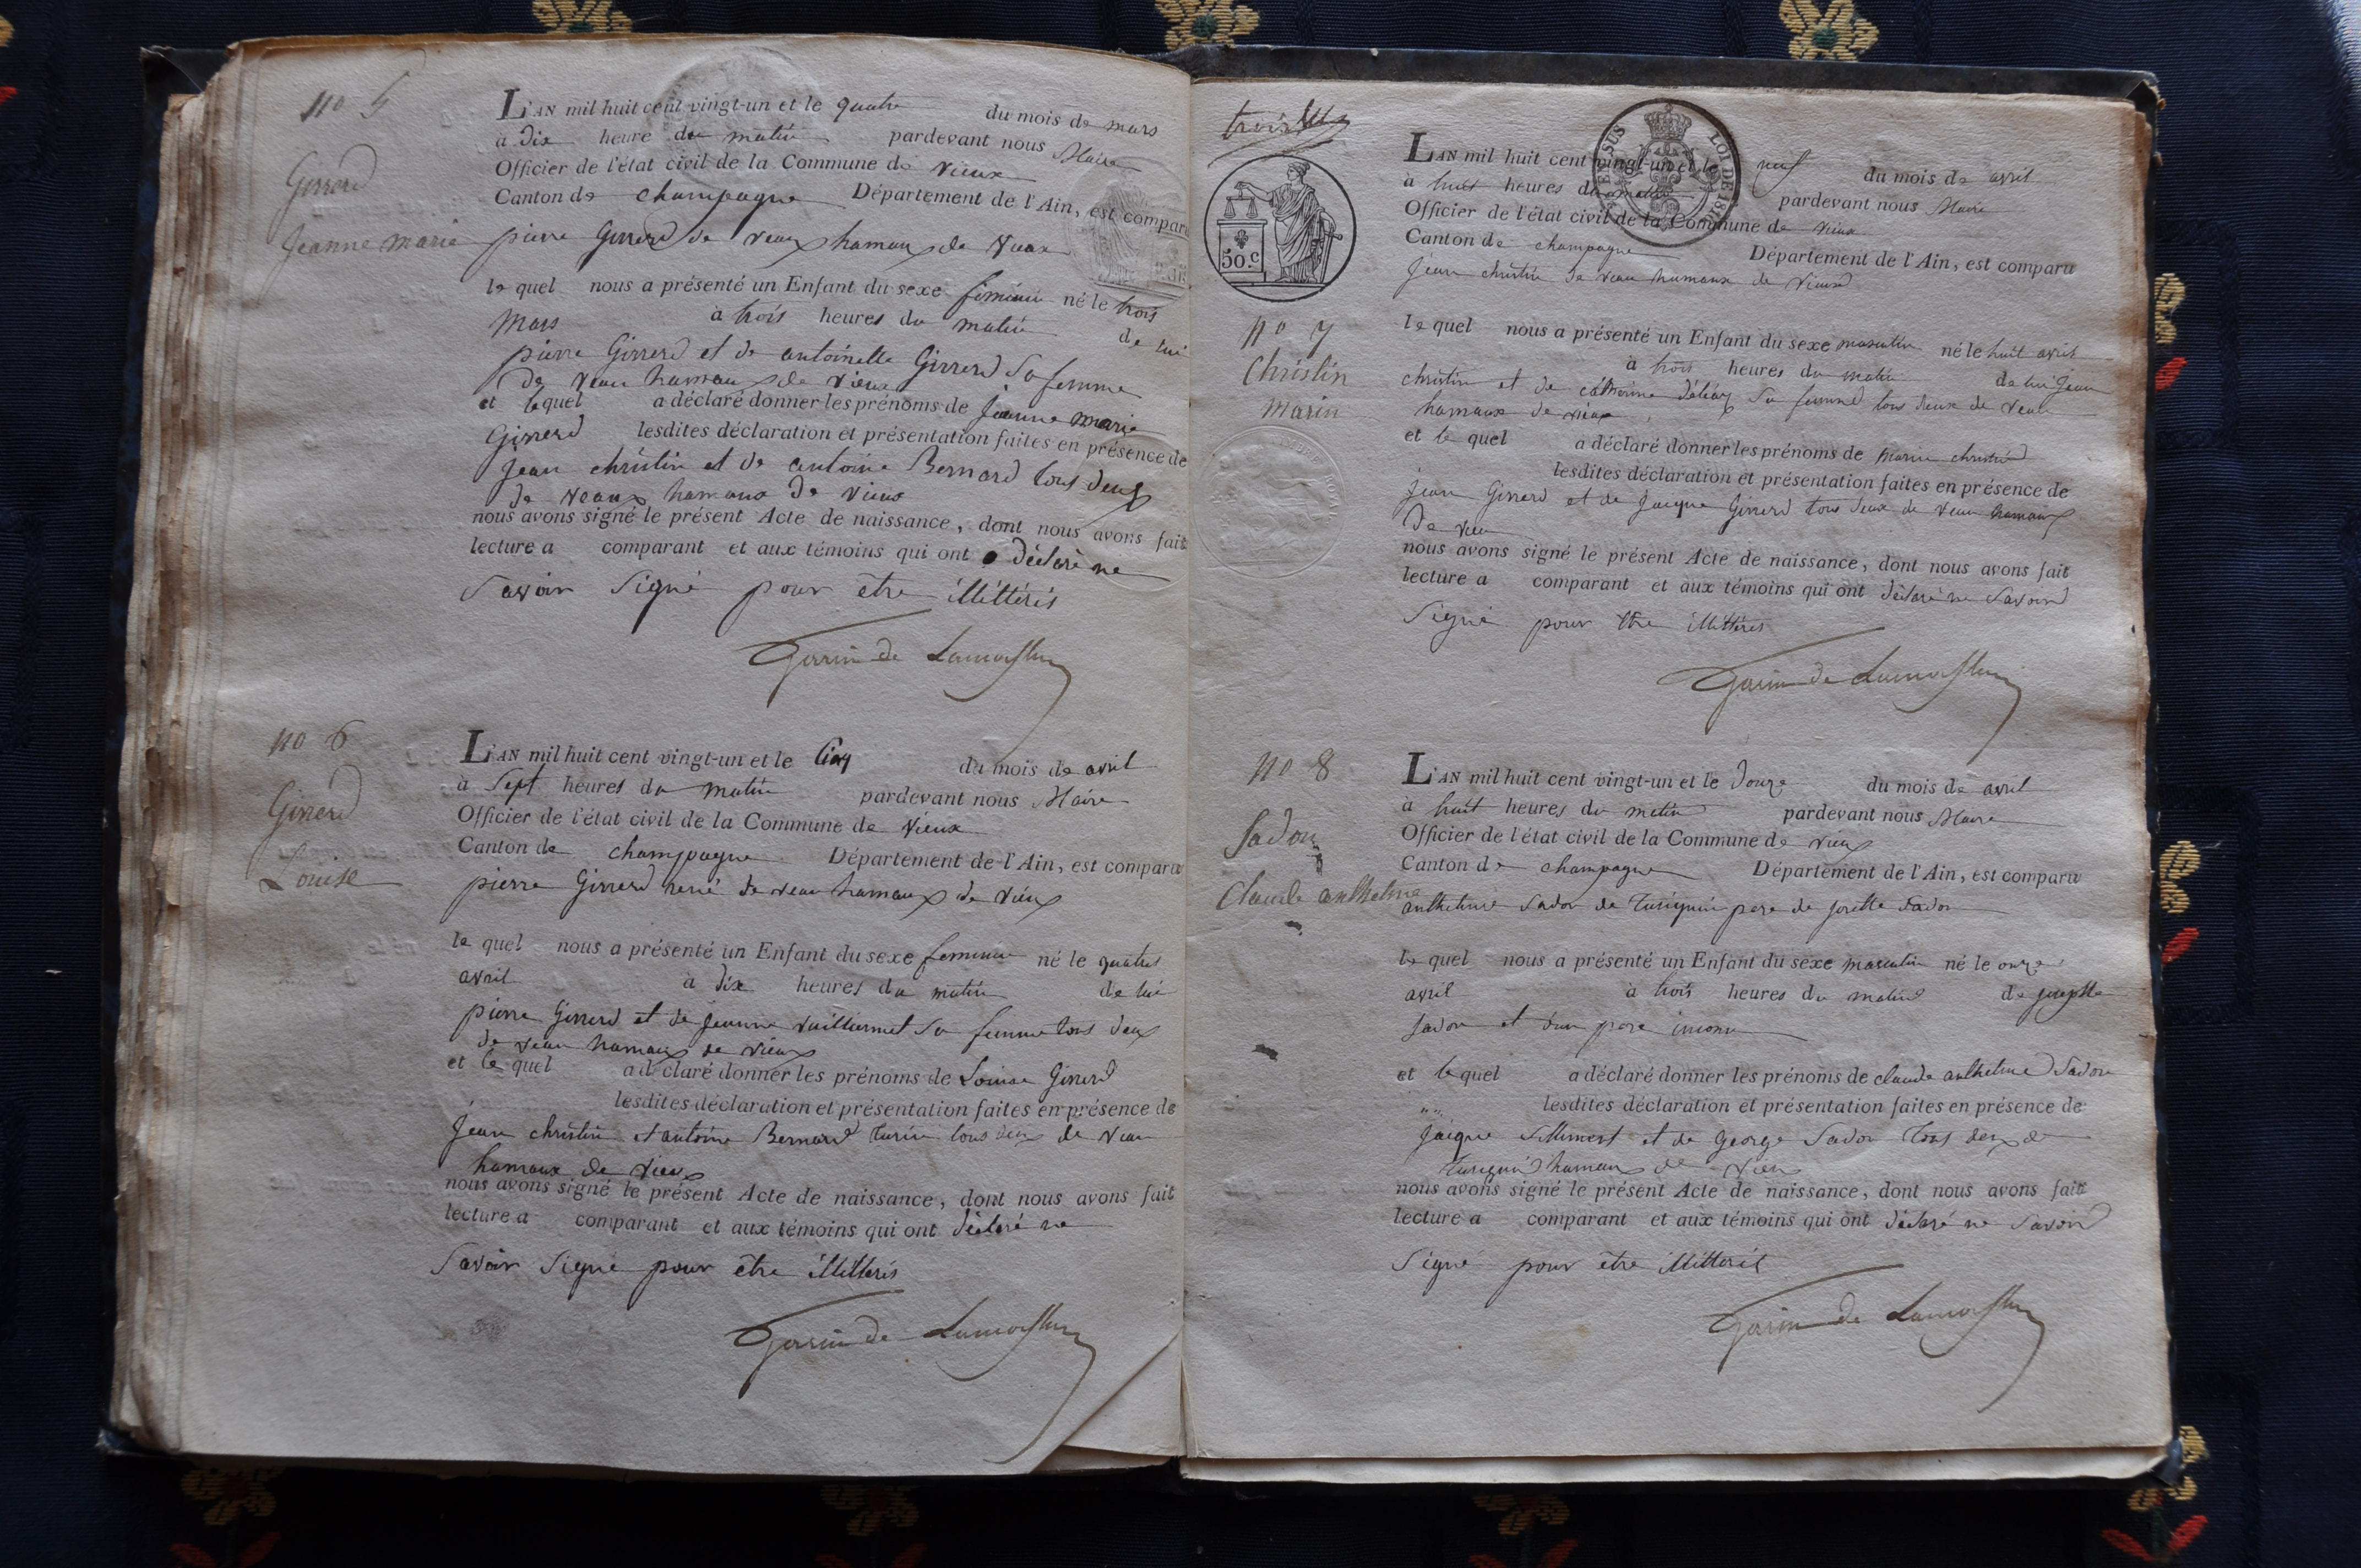 no 5
Girrerd
Jeanne marie
L'AN mil huit cent vingt-un et le quatre du mois de mars
à Dix heure du matin pardevant nous Maire
Officier de l'état civil de la Commune de vieux
Canton de champagne Département de l'Ain, est comparu
pierre Girrerd de veaux hamaux de vieux
le quel nous a présenté un Enfant du sexe féminin né le trois
Mars à trois heures du matin de lui
pierre Girrerd et de antoinette Girrerd Sa femme
de veau hamaux de vieux
et le quel a déclaré donner les prénoms de Jeanne marie
Girrerd lesdites déclaration et présentation faites en présence de
Jean christin et de antoine Bernard tous deux
de veaux hamaux de vieux
nous avons signé le présent Acte de naissance, dont nous avons fait
lecture a comparant et aux témoins qui ont déclaré ne
Savoir Signé pour etre illittéris
no 6
Girrerd
Louise
L'AN mil huit cent vingt-un et le Cinq du mois de avril
à Sept heures du matin pardevant nous Maire
Officier de l'état civil de la Commune de vieux
Canton de champagne Département de l'Ain, est comparu
pierre Girrerd de veau hamaux de vieux
le quel nous a présenté un Enfant du sexe feminin né le quatre
avril à dix heures du matin de lui
pierre Girrerd et de Jeanne Sa femme tous deux
de veau hamaux de vieux
et le quel a déclaré donner les prénoms de Louise Girrerd
lesdites déclaration et présentation faites en présence de
Jean christin et antoine Bernard tous deux de veau
hamaux de vieux
nous avons signé le présent Acte de naissance, dont nous avons fait
lecture a comparant et aux témoins qui ont déclaré ne
Savoir Signé pour être illittéris
trois
50.C
EN SUS LOI DE 1816
no 7
Christin
Marin
L'AN mil huit cent vingt-un et le neuf du mois de avril
à huit heures du matin pardevant nous Maire
Officier de l'état civil de la Commune de vieux
Canton de champagne Département de l'Ain, est comparu
Jean christin de veau hamaux de vieux
le quel nous a présenté un Enfant du sexe masculin né le huit avril
à trois heures du matin de lui Jean
christin et de Sa femme tous deux de veau
hamaux de vieux
et le quel a déclaré donner les prénoms de marin christin
lesdites déclaration et présentation faites en présence de
Jean Girrerd et de Jacque Girrerd tous deux de veau hamaux
de vieu
nous avons signé le présent Acte de naissance, dont nous avons fait
lecture a comparant et aux témoins qui ont déclaré ne Savoir
Signé pour être illittéris
no 8
Sadon
Claude anthelme
L'AN mil huit cent vingt-un et le Douze du mois de avril
à huit heures du matin pardevant nous Maire
Officier de l'état civil de la Commune de vieux
Canton de champagne Département de l'Ain, est comparu
anthelme Sadon de pere de Sadon
le quel nous a présenté un Enfant du sexe masculin né le onze
avril à trois heures du matin de
Sadon et d'un pere inconu
et le quel a déclaré donner les prénoms de claude anthelme Sadon
lesdites déclaration et présentation faites en présence de
Jacque et de George Sadon tous deux de
hamaux de vieux
nous avons signé le présent Acte de naissance, dont nous avons fait
lecture a comparant et aux témoins qui ont déclaré ne Savoir
Signé pour être illittéris